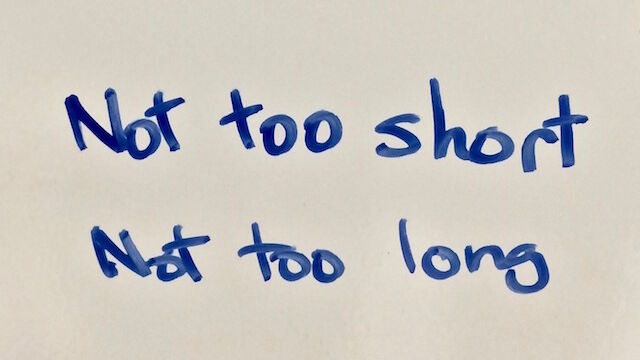 Not too short
Not too long